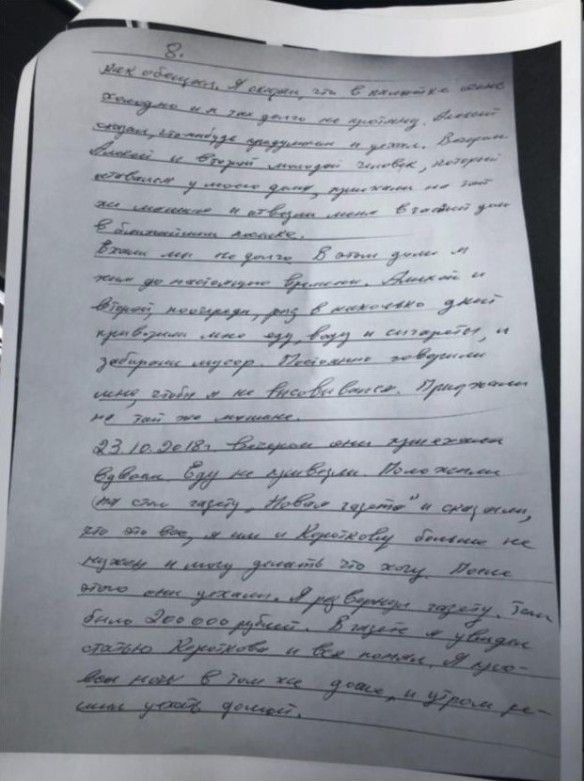 8.
как обещал. Я сказал, что в палатке очень
холодно и я так долго не протяну. Алексей
сказал, что-нибудь придумаем и уехал. Вечером
Алексей и второй молодой человек, который
оставался у моего дома, приехали на той
же машине и отвезли меня в частный дом
в ближайшем поселке.
Ехали мы не долго. В этом доме я
жил до настоящего времени. Алексей и
второй, поочереди, раз в несколько дней
привозили мне еду, воду и сигареты, и
забирали мусор. Постоянно говорили
мне, чтобы я не высовывался. Приезжали
на той же машине.
23.10.2018г. вечером они приехали
вдвоем. Еду не привезли. Положили
на стол газету "Новая газета" и сказали,
что это все, я им и Короткову больше не
нужен и могу делать что хочу. После
этого они уехали. Я развернул газету. Там
было 200 000 рублей. В газете я увидел
статью Короткова и все понял. Я про-
вел ночь в том же доме, и утром ре-
шил уехать домой.